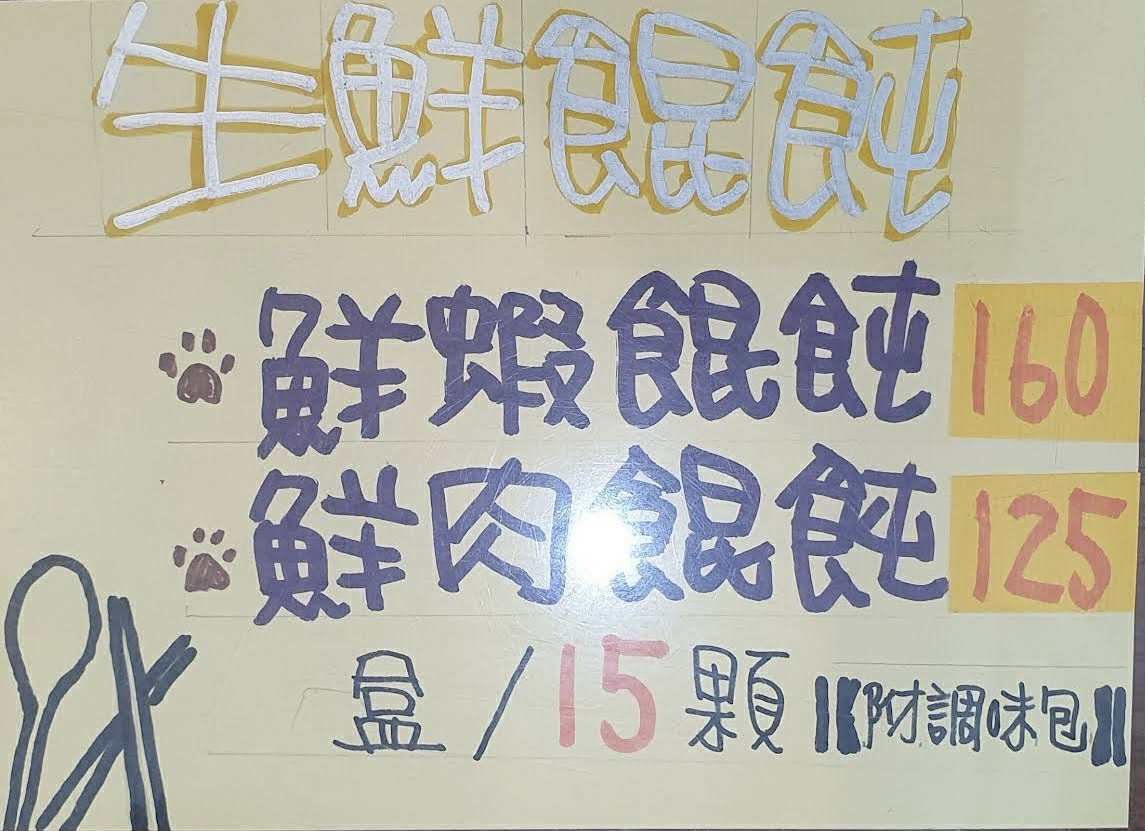 生鮮餛飩
鮮蝦餛飩 160
鮮肉餛飩 125
盒/15顆 【附調味包】